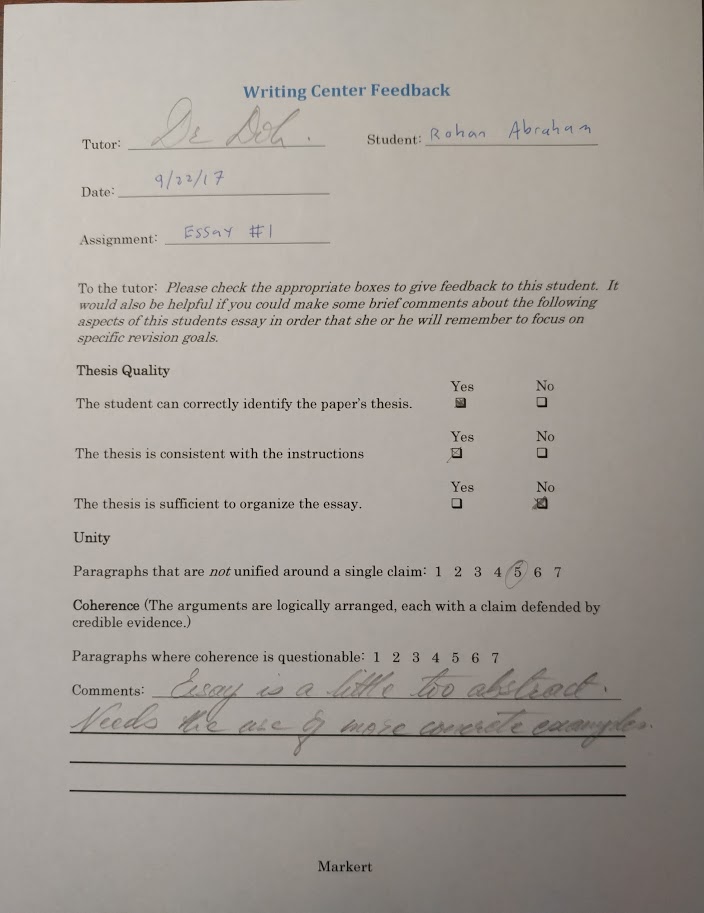 Writing Center Feedback
Tutor: Student: Rohan Abraham
Date: 9/22/17
Assignment: Essay #1
To the tutor: Please check the appropriate boxes to give feedback to this student. It
would also be helpful if you could make some brief comments about the following
aspects of this students essay in order that she or he will remember to focus on
specific revision goals.
Thesis Quality
Yes No
The student can correctly identify the paper's thesis.
Yes No
The thesis is consistent with the instructions
Yes No
The thesis is sufficient to organize the essay.
Unity
Paragraphs that are not unified around a single claim: 1 2 3 4 5 6 7
Coherence (The arguments are logically arranged, each with a claim defended by
credible evidence.)
Paragraphs where coherence is questionable: 1 2 3 4 5 6 7
Comments: Essay is a little too abstract.
Needs the use of more concrete examples.
Markert